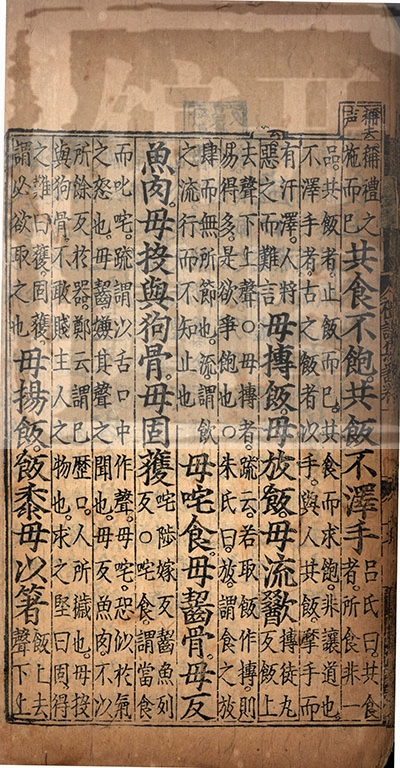 稱去声
稱禮之
施而已
共食不飽。共飯不澤手
呂氏曰。共食
者。所食非一
品。共飯者。止飯而已。共食而求飽。非讓道也。
不澤手者。古之飯者以手。與人共飯。摩手而
有汗澤。人將
惡之而難言
毋摶飯。毋放飯。毋流歠
摶徒丸
反飯上
去聲下上聲○毋摶者。疏云。若取飯作摶。則
易得多。是欲爭飽也○朱氏曰。放謂食之放
肆而無所節也。流謂飲
之流行而不知止也
毋咤食。毋齧骨。毋反
魚肉。毋投與狗骨。毋固獲
咤陟嫁反齧魚列
反○咤食謂當食
而叱咤。疏謂以舌口中作聲。毋咤。恐似於氣
之怒也。毋齧嫌其聲之聞也。毋反魚肉不以
所餘反於器。鄭云謂已歷口。人所穢也。毋投
與狗骨。不敢賤主人之物也。求之堅曰固。得
之難曰獲。固獲
謂必欲取之也
毋揚飯。飯黍毋以箸
飯上去
聲下上